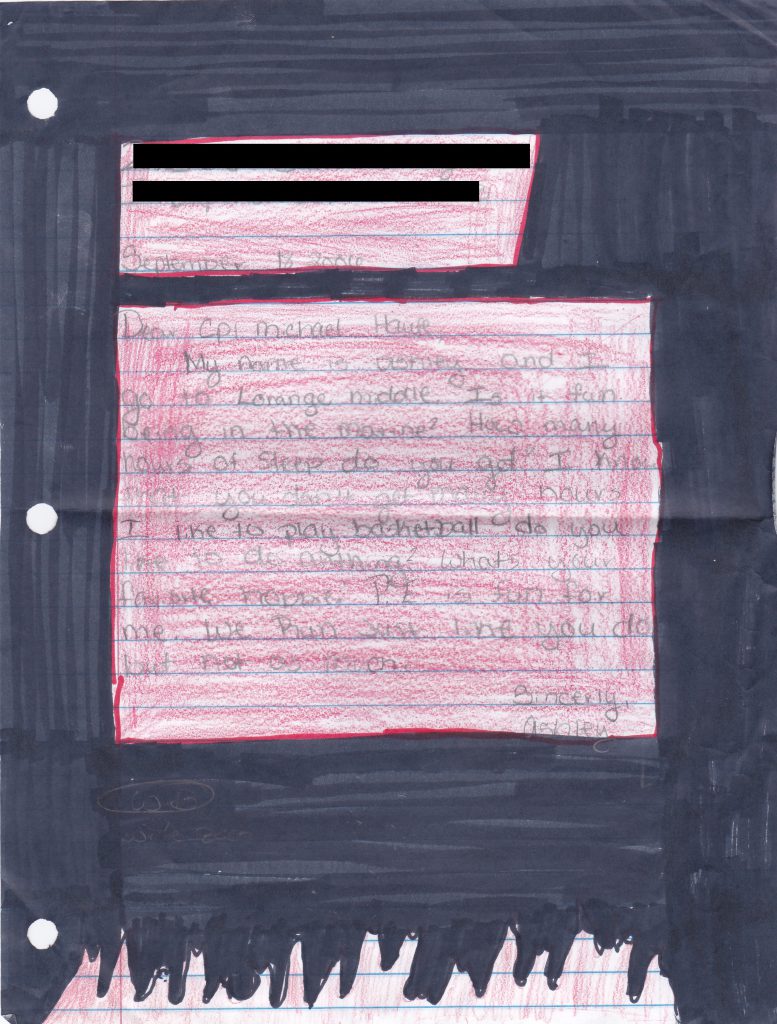 September 13 2004
Dear Cpl Michael Haute
My name is ashley and I
go to Lorange middle. Is it fun
being in the marine? How many
hours of Sleep do you get I know
that you don't get many hours
I like to play basketball do you
like to do anything? What's your
favorite P.E is fun for
me. We Run Just like you do
but not as
Sincerly,
ashley